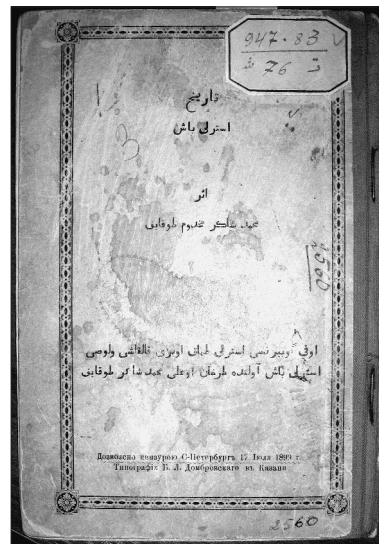 947.83
ت 76 ش
تاريخ
استرلي باش
اثر
محمد شاكر مخدوم طوقايف
اوفا غوبيرنسى استرلى طاماق اويزى قالقاشى ولوصى
استرلى باش آولنده طرخان اوغلى محمد شاكر طوقايف
2560
Дозволено цензурою С-Петербургъ 17 Іюля 1899 г.
Типографія Б. Л. Домбровскаго въ Казани
2560